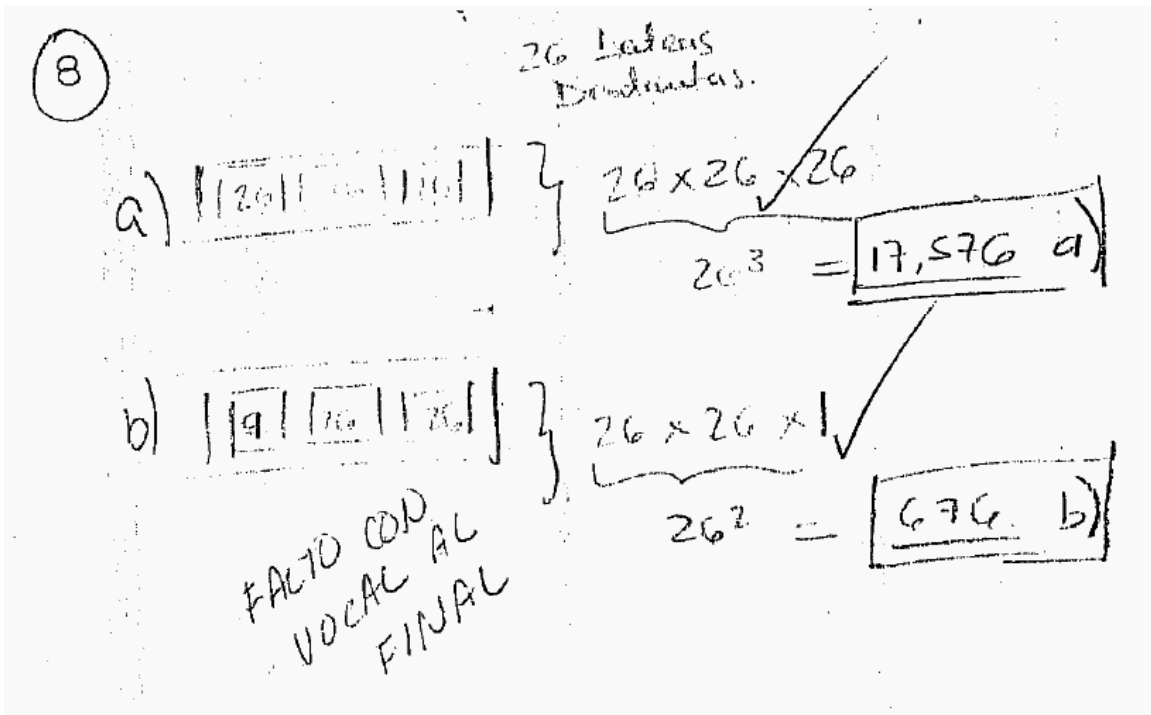 8
26 Letras
a) |26| |26| |26| } 26 x 26 x 26
26³ = 17,576 a)
b) |a| |26| |26| } 26 x 26 x 1
26² = 676 b)
FALTO CON
VOCAL AL
FINAL